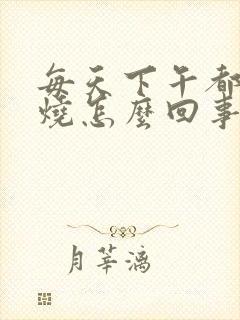 每天下午都
燒怎麼回事
月莘漓